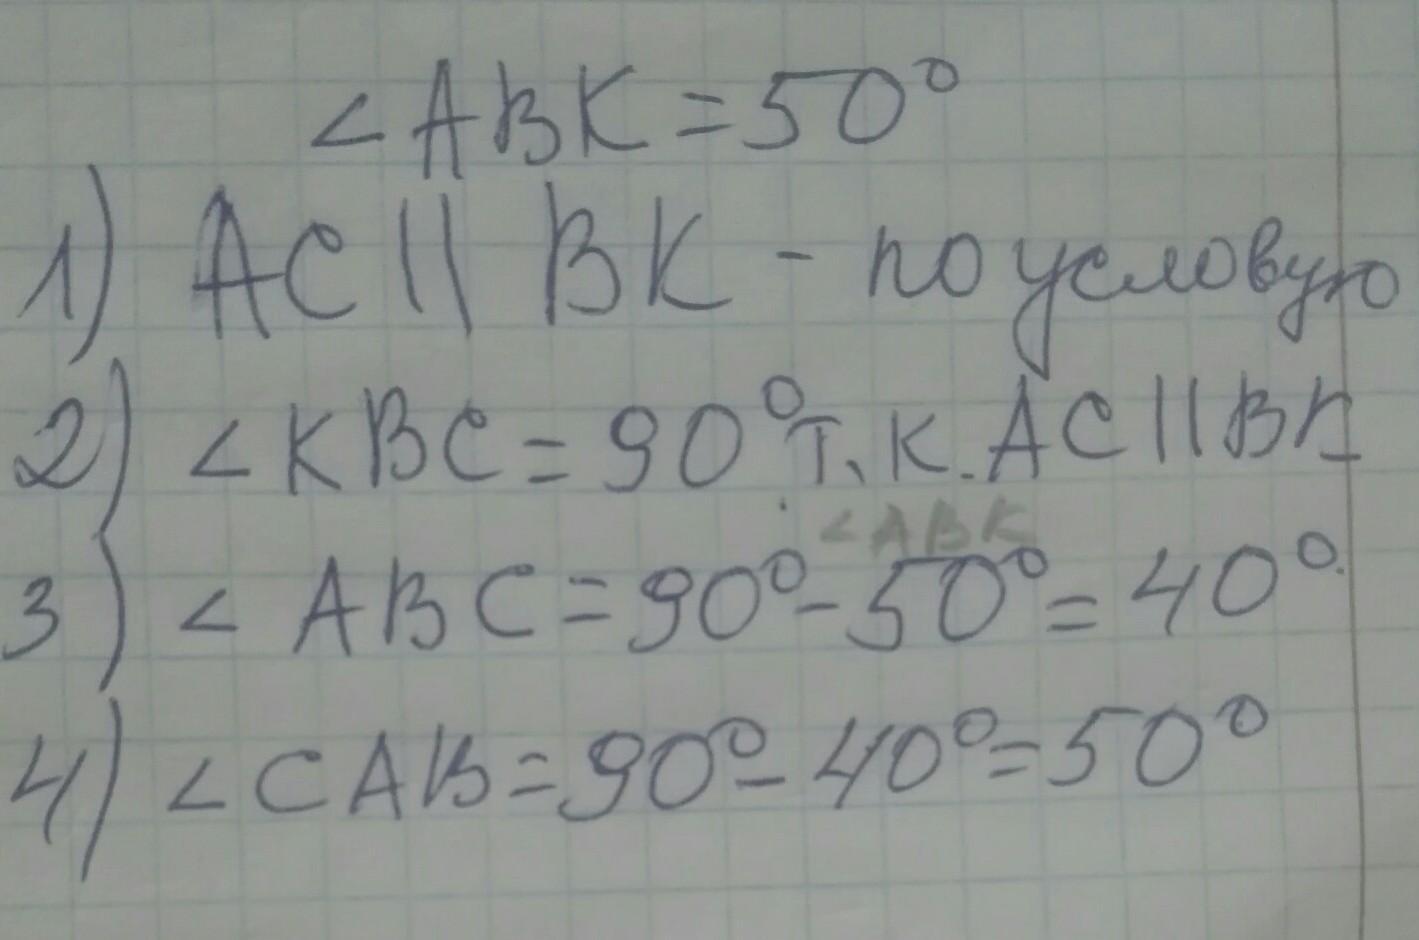 <ABK=50°
1) AC || BK - по условую
2) <KBC=90° т.к. AC||BK
<ABK
3) <ABC=90°-50°=40°.
4) <CAB=90°-40°=50°